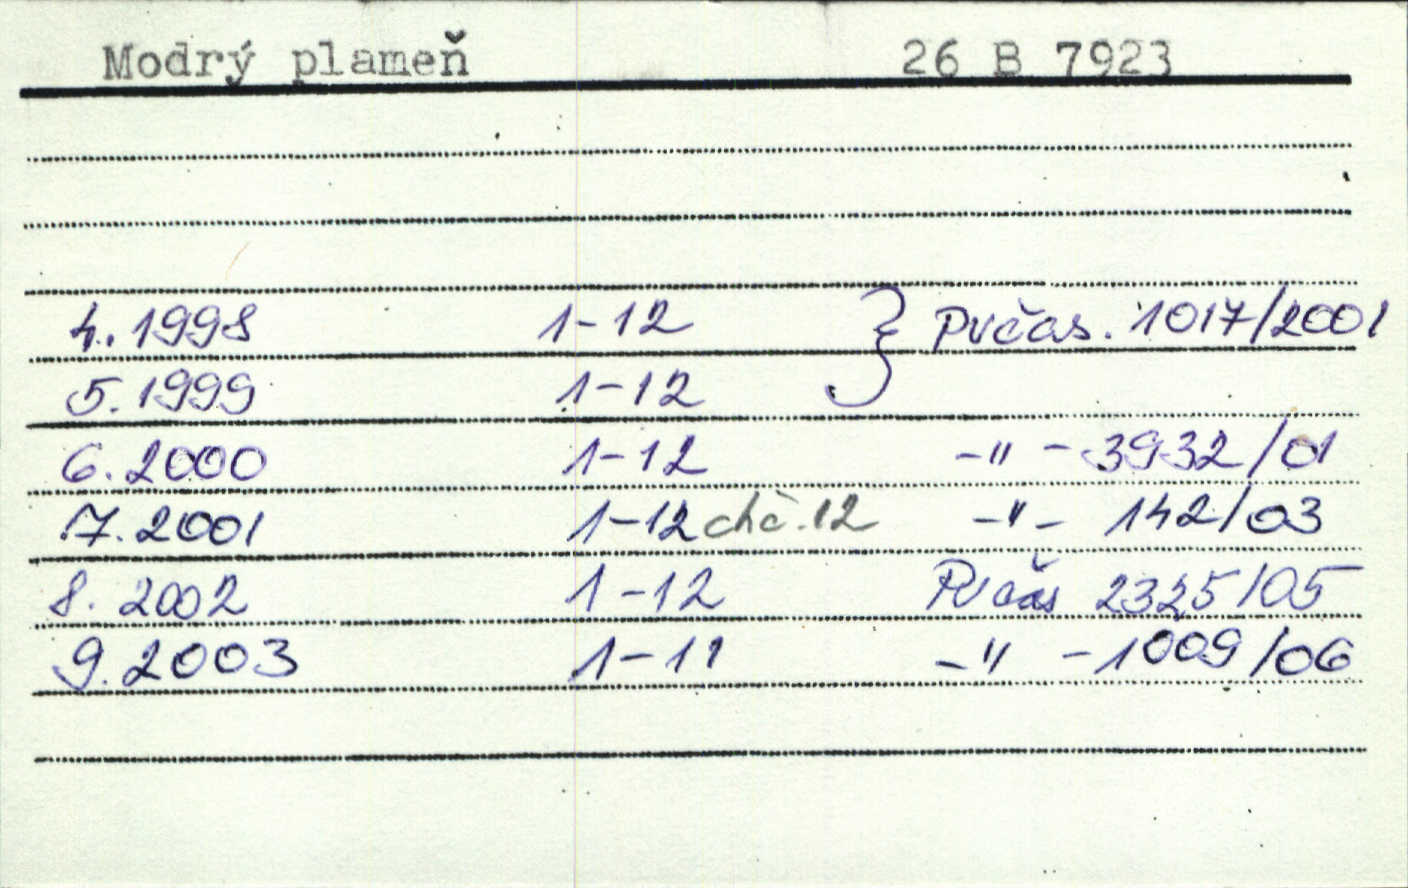 Modrý plameň 26 B 7923
4. 1998 1-12 } PVčas. 1017/2001
5. 1999 1-12
6. 2000 1-12 -"- 3932/01
7. 2001 1-12 chč. 12 -"- 142/03
8. 2002 1-12 PVčas 2325/05
9. 2003 1-11 -"- 1009/06